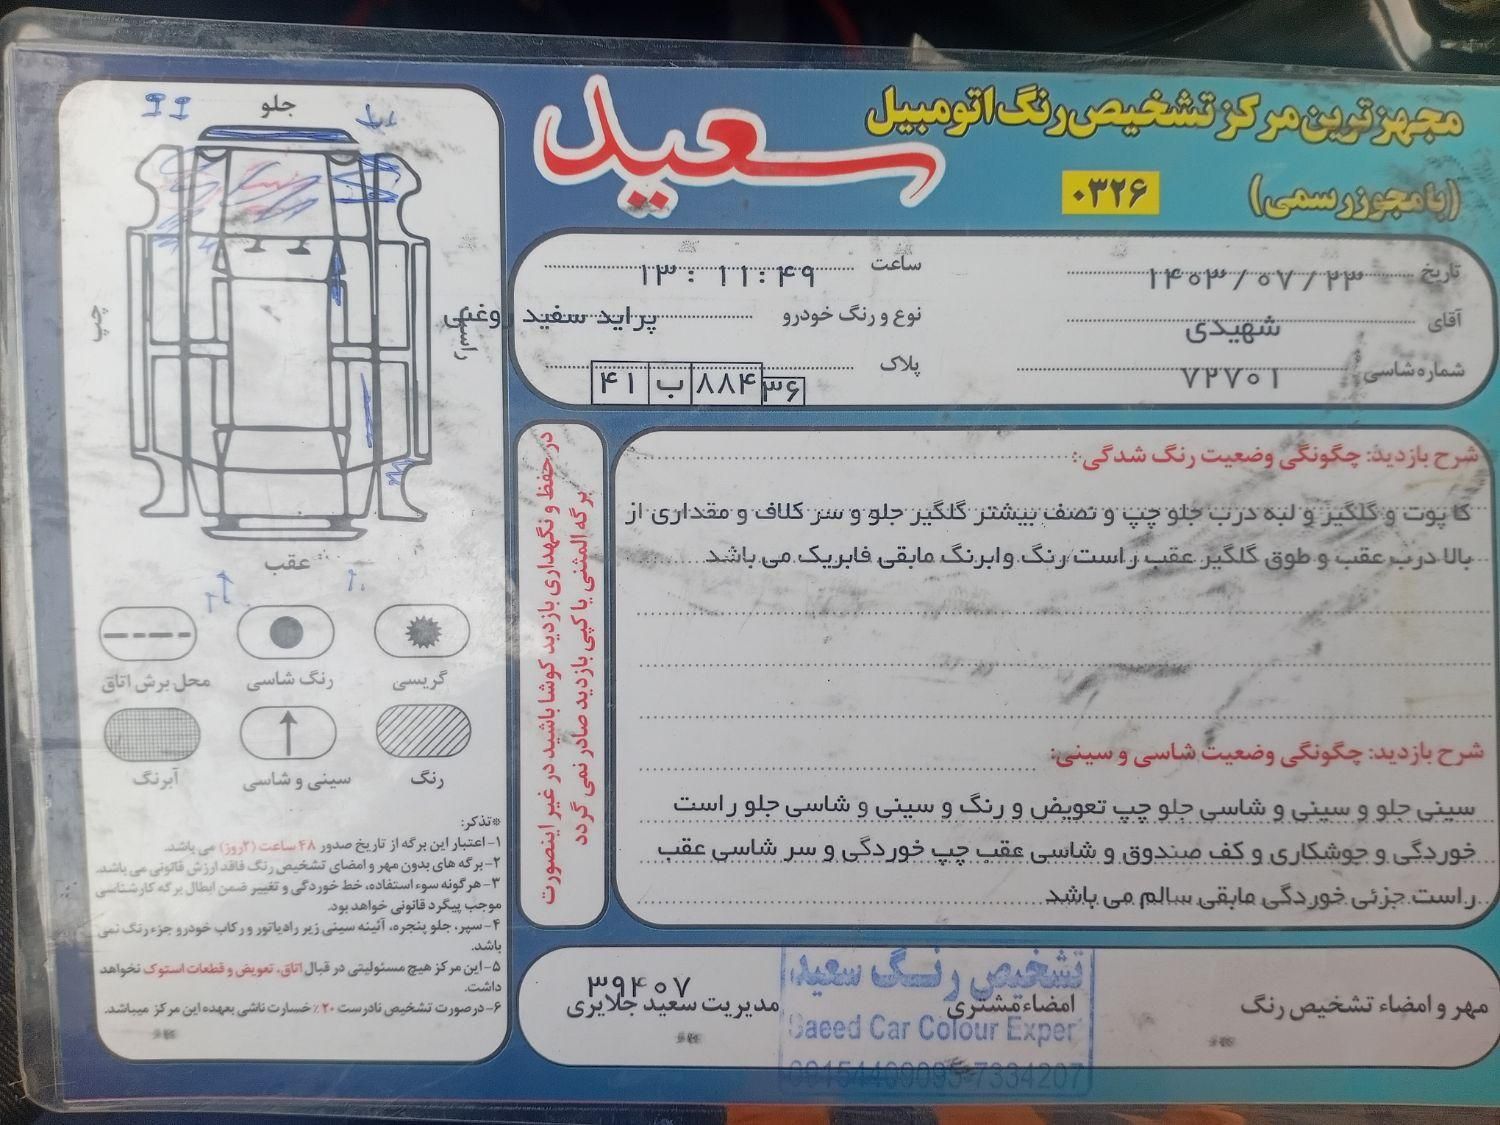 مجهزترین مرکز تشخیص رنگ اتومبیل
سعید
(با مجوز رسمی)
۰۳۲۶
تاریخ ۱۴۰۳/۰۷/۲۳
ساعت ۱۳:۱۱:۴۹
آقای شهیدی
نوع و رنگ خودرو پراید سفید روغنی
شماره شاسی ۷۲۷۰۱
پلاک ۴۱ ب ۸۸۴ ۳۶
شرح بازدید: چگونگی وضعیت رنگ شدگی:
کاپوت و گلگیر و لبه درب جلو چپ و نصف بیشتر گلگیر جلو و سر کلاف و مقداری از
بالا درب عقب و طوق گلگیر عقب راست رنگ وابرنگ مابقی فابریک می باشد
شرح بازدید: چگونگی وضعیت شاسی و سینی:
سینی جلو و سینی و شاسی جلو چپ تعویض و رنگ و سینی و شاسی جلو راست
خوردگی و جوشکاری و کف صندوق و شاسی عقب چپ خوردگی و سر شاسی عقب
راست جزئی خوردگی مابقی سالم می باشد
در حفظ و نگهداری بازدید کوشا باشید در غیر اینصورت
برگه المثنی یا کپی بازدید صادر نمی گردد
جلو
چپ
راست
عقب
گریسی
رنگ شاسی
محل برش اتاق
رنگ
سینی و شاسی
آبرنگ
*تذکر:
۱- اعتبار این برگه از تاریخ صدور ۴۸ ساعت (۲روز) می باشد.
۲- برگه های بدون مهر و امضای تشخیص رنگ فاقد ارزش قانونی می باشد.
۳- هرگونه سوء استفاده، خط خوردگی و تغییر ضمن ابطال برگه کارشناسی
موجب پیگرد قانونی خواهد بود.
۴- سپر، جلو پنجره، آئینه سینی زیر رادیاتور و رکاب خودرو جزء رنگ نمی
باشد.
۵- این مرکز هیچ مسئولیتی در قبال اتاق، تعویض و قطعات استوک نخواهد
داشت.
۶- درصورت تشخیص نادرست ۲۰٪ خسارت ناشی بعهده این مرکز میباشد.
مهر و امضاء تشخیص رنگ
امضاء مشتری
۳۹۴۰۷
مدیریت سعید جلایری
تشخیص رنگ سعید
Saeed Car Colour Exper